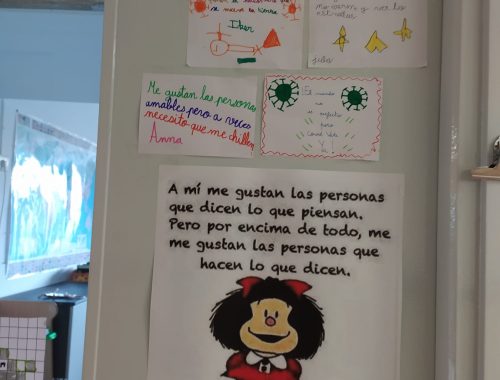 se mueva la tierra
Iker
y ver las
estrellas
Julia
Me gustan las personas
amables pero a veces
necesito que me chillen
Anna
El mundo
no
es perfecto
pero
Covid Vete
Ya!
A mí me gustan las personas
que dicen lo que piensan.
Pero por encima de todo, me
me gustan las personas que
hacen lo que dicen.